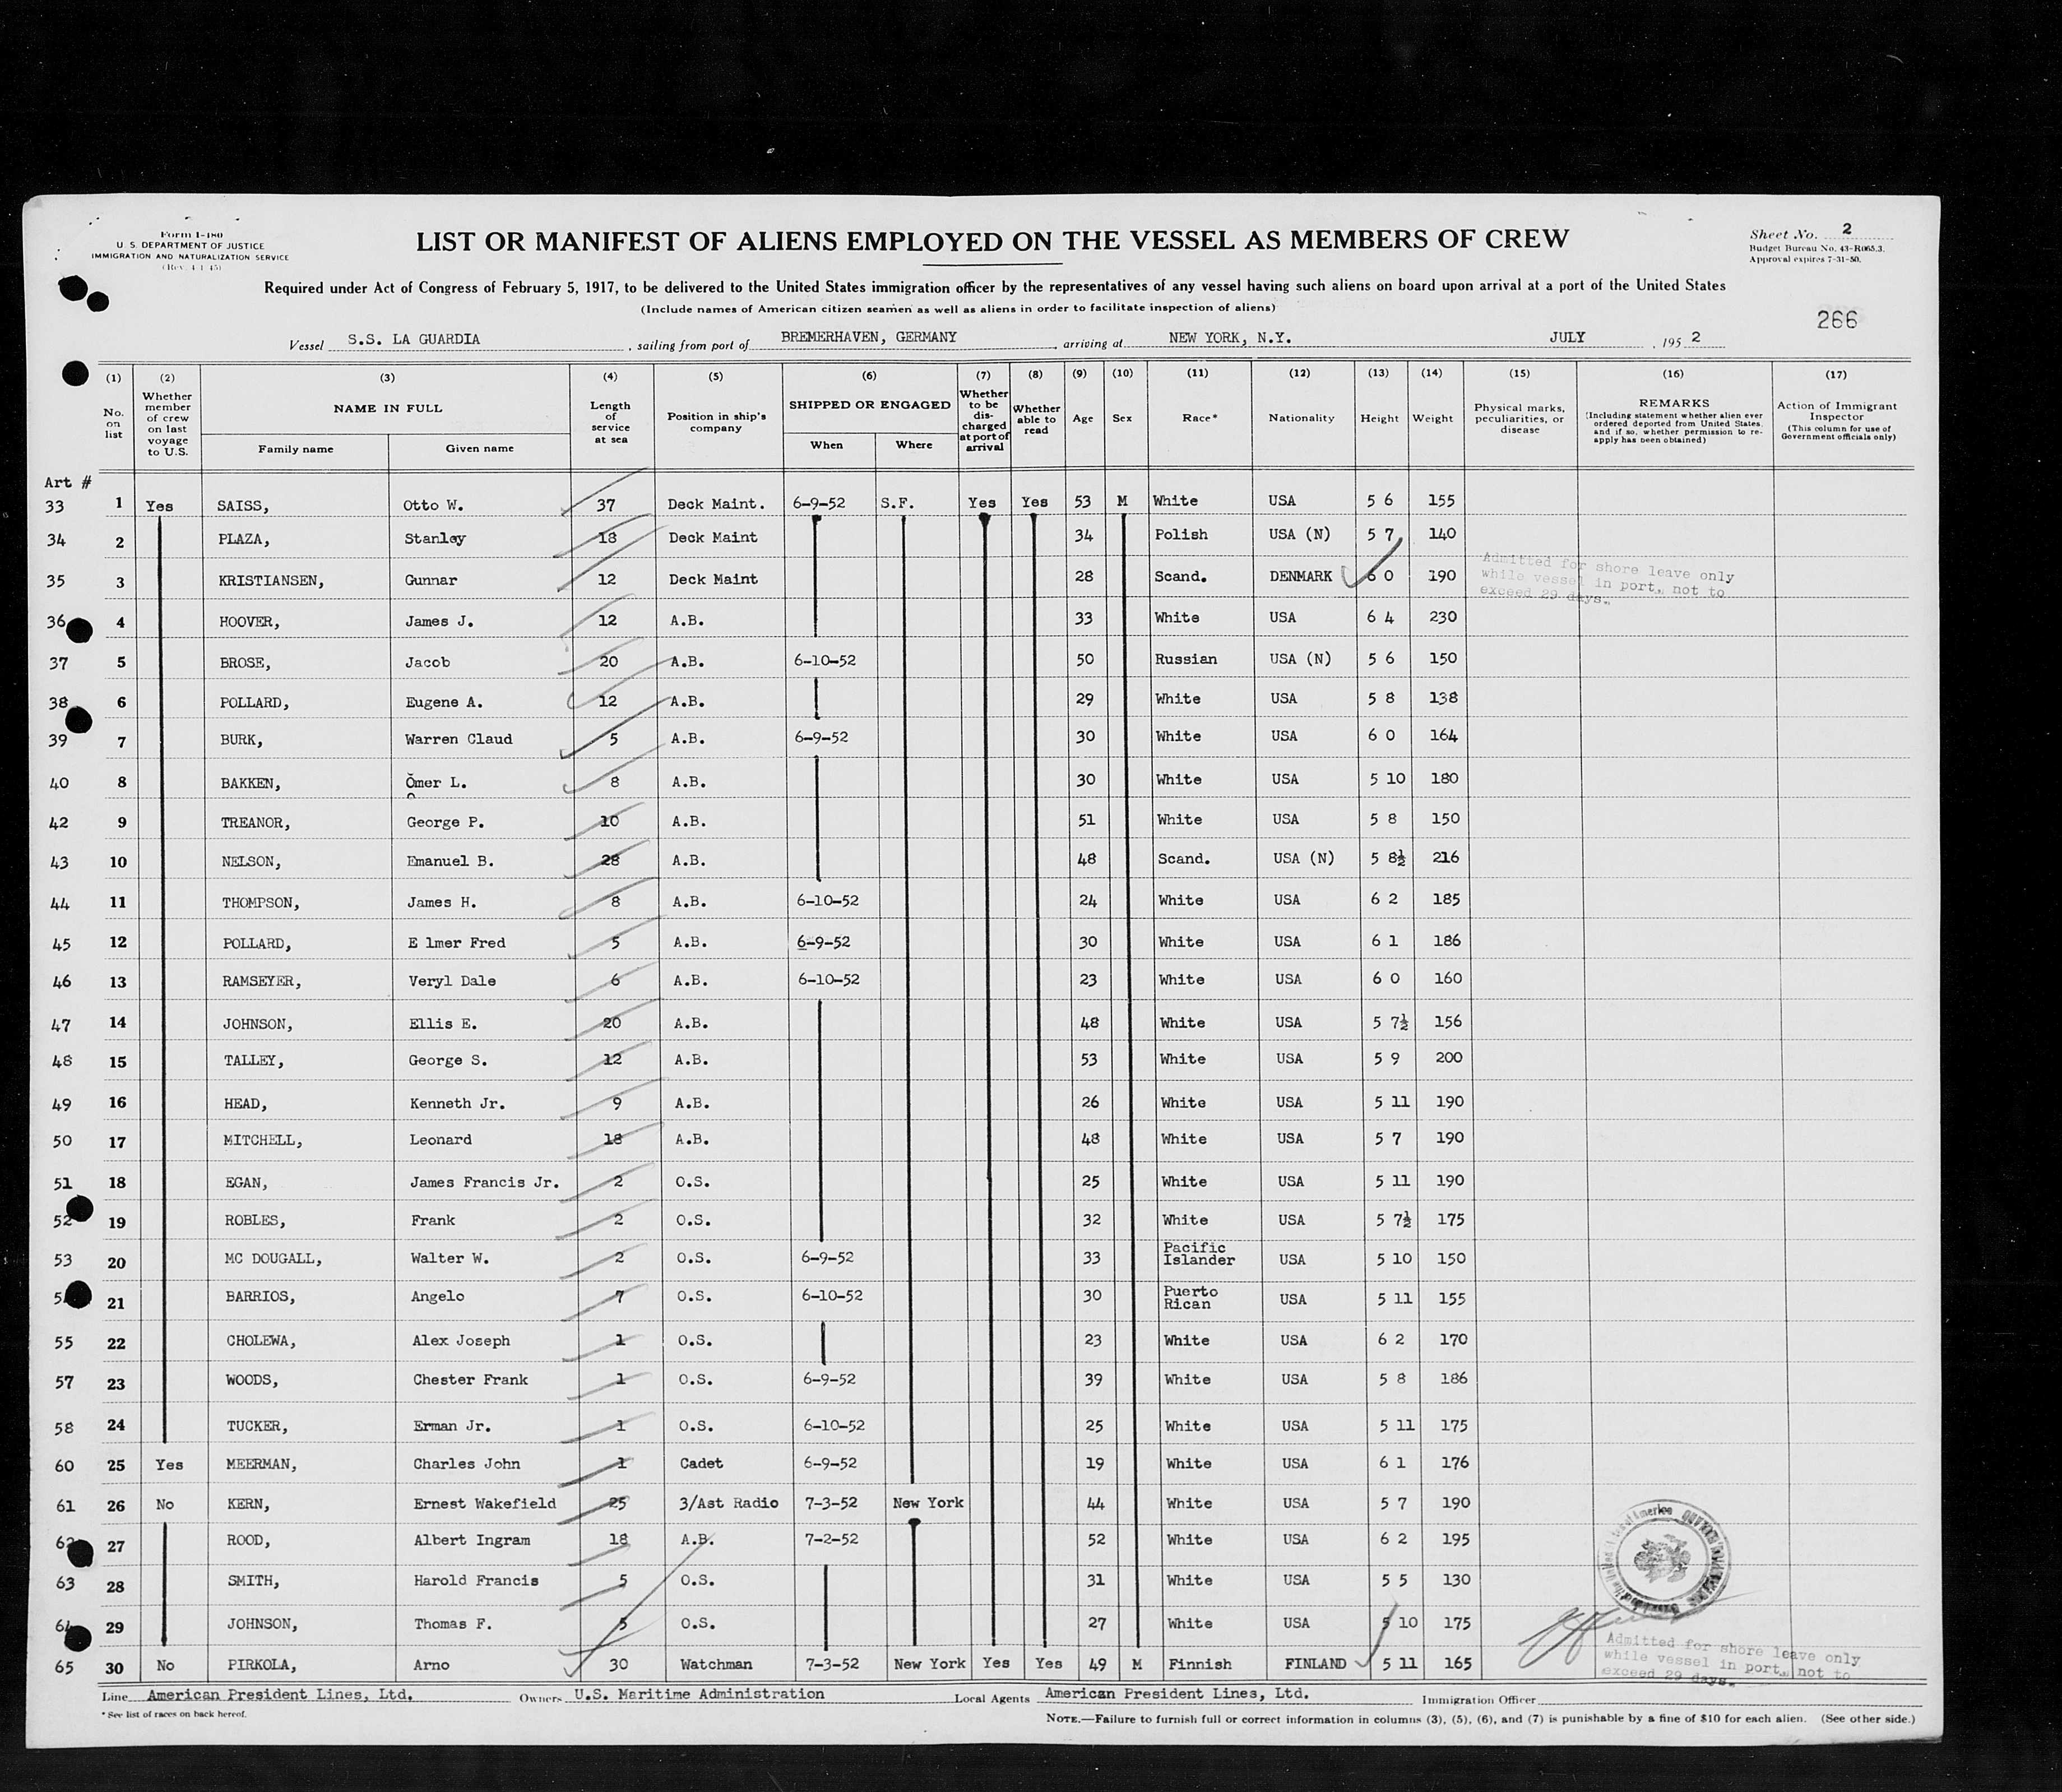 Form I-180
U. S. DEPARTMENT OF JUSTICE
IMMIGRATION AND NATURALIZATION SERVICE
(Rev. 4-1-45)
LIST OR MANIFEST OF ALIENS EMPLOYED ON THE VESSEL AS MEMBERS OF CREW
Sheet No. 2
Budget Bureau No. 43-R065.3.
Approval expires 7-31-50.
Required under Act of Congress of February 5, 1917, to be delivered to the United States immigration officer by the representatives of any vessel having such aliens on board upon arrival at a port of the United States
(Include names of American citizen seamen as well as aliens in order to facilitate inspection of aliens)
266
Vessel S.S. LA GUARDIA, sailing from port of BREMERHAVEN, GERMANY, arriving at NEW YORK, N.Y. JULY, 195 2
(1) No. on list
(2) Whether member of crew on last voyage to U.S.
(3) NAME IN FULL Family name Given name
(4) Length of service at sea
(5) Position in ship's company
(6) SHIPPED OR ENGAGED When Where
(7) Whether to be discharged at port of arrival
(8) Whether able to read
(9) Age
(10) Sex
(11) Race*
(12) Nationality
(13) Height
(14) Weight
(15) Physical marks, peculiarities, or disease
(16) REMARKS (Including statement whether alien ever ordered deported from United States, and if so, whether permission to re-apply has been obtained)
(17) Action of Immigrant Inspector (This column for use of Government officials only)
Art #
33 1 Yes SAISS, Otto W. 37 Deck Maint. 6-9-52 S.F. Yes Yes 53 M White USA 5 6 155
34 2 PLAZA, Stanley 18 Deck Maint 34 Polish USA (N) 5 7 140
35 3 KRISTIANSEN, Gunnar 12 Deck Maint 28 Scand. DENMARK 6 0 190 Admitted for shore leave only while vessel in port, not to exceed 29 days.
36 4 HOOVER, James J. 12 A.B. 33 White USA 6 4 230
37 5 BROSE, Jacob 20 A.B. 6-10-52 50 Russian USA (N) 5 6 150
38 6 POLLARD, Eugene A. 12 A.B. 29 White USA 5 8 138
39 7 BURK, Warren Claud 5 A.B. 6-9-52 30 White USA 6 0 164
40 8 BAKKEN, Omer L. 8 A.B. 30 White USA 5 10 180
42 9 TREANOR, George P. 10 A.B. 51 White USA 5 8 150
43 10 NELSON, Emanuel B. 28 A.B. 48 Scand. USA (N) 5 8½ 216
44 11 THOMPSON, James H. 8 A.B. 6-10-52 24 White USA 6 2 185
45 12 POLLARD, E lmer Fred 5 A.B. 6-9-52 30 White USA 6 1 186
46 13 RAMSEYER, Veryl Dale 6 A.B. 6-10-52 23 White USA 6 0 160
47 14 JOHNSON, Ellis E. 20 A.B. 48 White USA 5 7½ 156
48 15 TALLEY, George S. 12 A.B. 53 White USA 5 9 200
49 16 HEAD, Kenneth Jr. 9 A.B. 26 White USA 5 11 190
50 17 MITCHELL, Leonard 18 A.B. 48 White USA 5 7 190
51 18 EGAN, James Francis Jr. 2 O.S. 25 White USA 5 11 190
52 19 ROBLES, Frank 2 O.S. 32 White USA 5 7½ 175
53 20 MC DOUGALL, Walter W. 2 O.S. 6-9-52 33 Pacific Islander USA 5 10 150
5 21 BARRIOS, Angelo 7 O.S. 6-10-52 30 Puerto Rican USA 5 11 155
55 22 CHOLEWA, Alex Joseph 1 O.S. 23 White USA 6 2 170
57 23 WOODS, Chester Frank 1 O.S. 6-9-52 39 White USA 5 8 186
58 24 TUCKER, Erman Jr. 1 O.S. 6-10-52 25 White USA 5 11 175
60 25 Yes MEERMAN, Charles John 1 Cadet 6-9-52 19 White USA 6 1 176
61 26 No KERN, Ernest Wakefield 25 3/Ast Radio 7-3-52 New York 44 White USA 5 7 190
62 27 ROOD, Albert Ingram 18 A.B. 7-2-52 52 White USA 6 2 195
63 28 SMITH, Harold Francis 5 O.S. 31 White USA 5 5 130
64 29 JOHNSON, Thomas F. 5 O.S. 27 White USA 5 10 175
65 30 No PIRKOLA, Arno 30 Watchman 7-3-52 New York Yes Yes 49 M Finnish FINLAND 5 11 165 Admitted for shore leave only while vessel in port, not to exceed 29 days.
Line American President Lines, Ltd. Owners U.S. Maritime Administration Local Agents American President Lines, Ltd. Immigration Officer
* See list of races on back hereof.
NOTE.—Failure to furnish full or correct information in columns (3), (5), (6), and (7) is punishable by a fine of $10 for each alien. (See other side.)